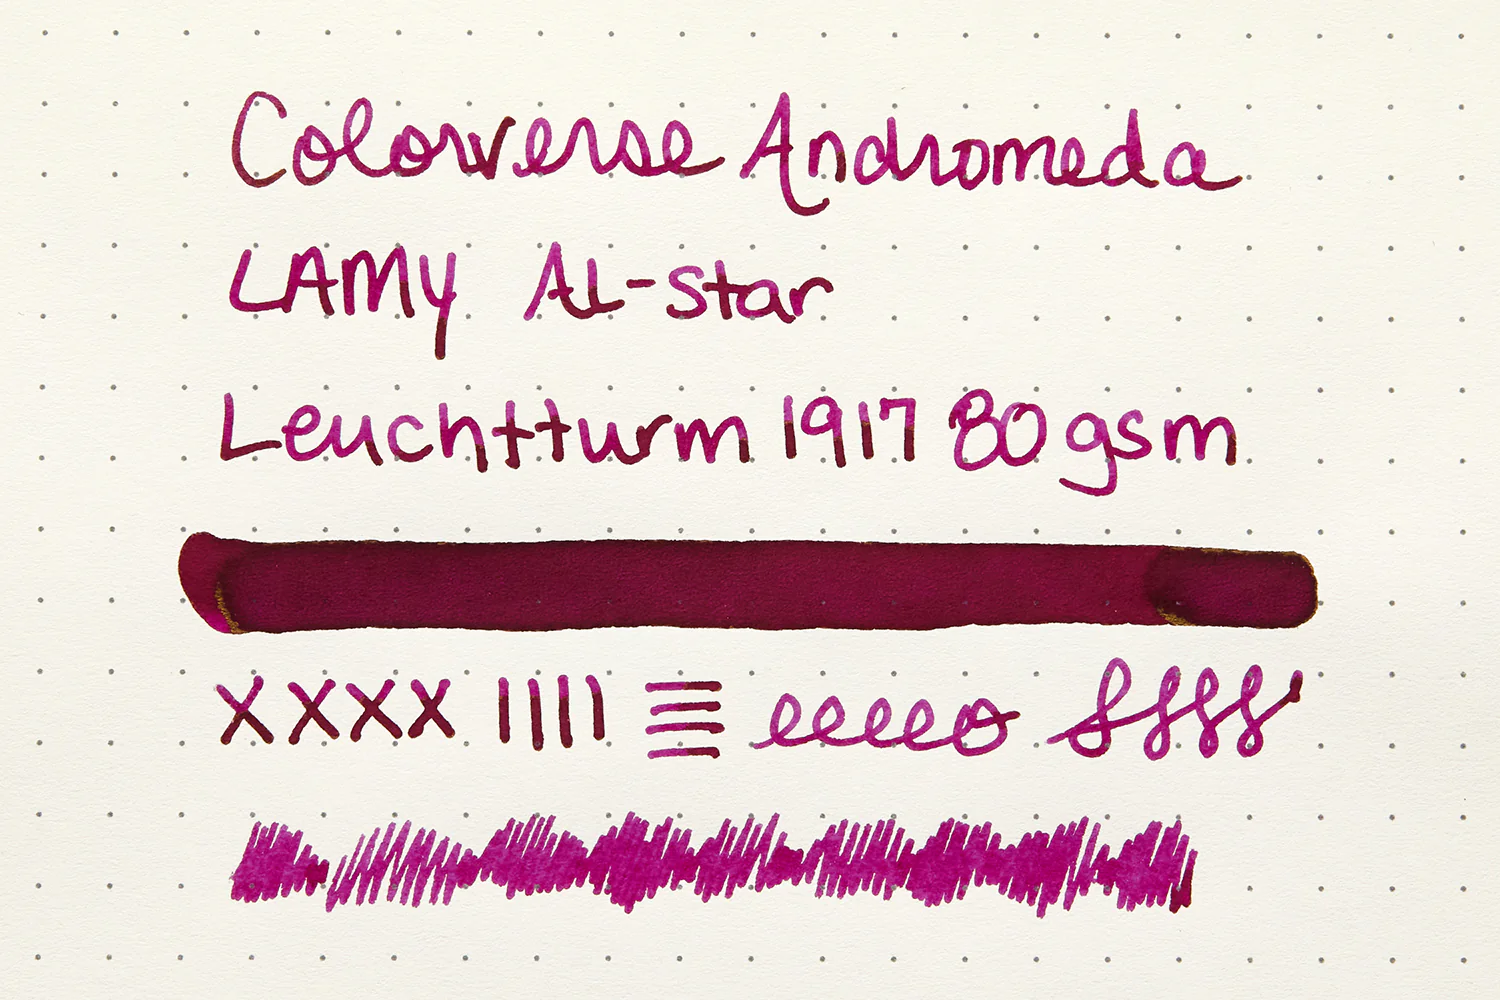 Colorverse Andromeda
LAMY AL-star
Leuchtturm 1917 80 gsm
xxxx